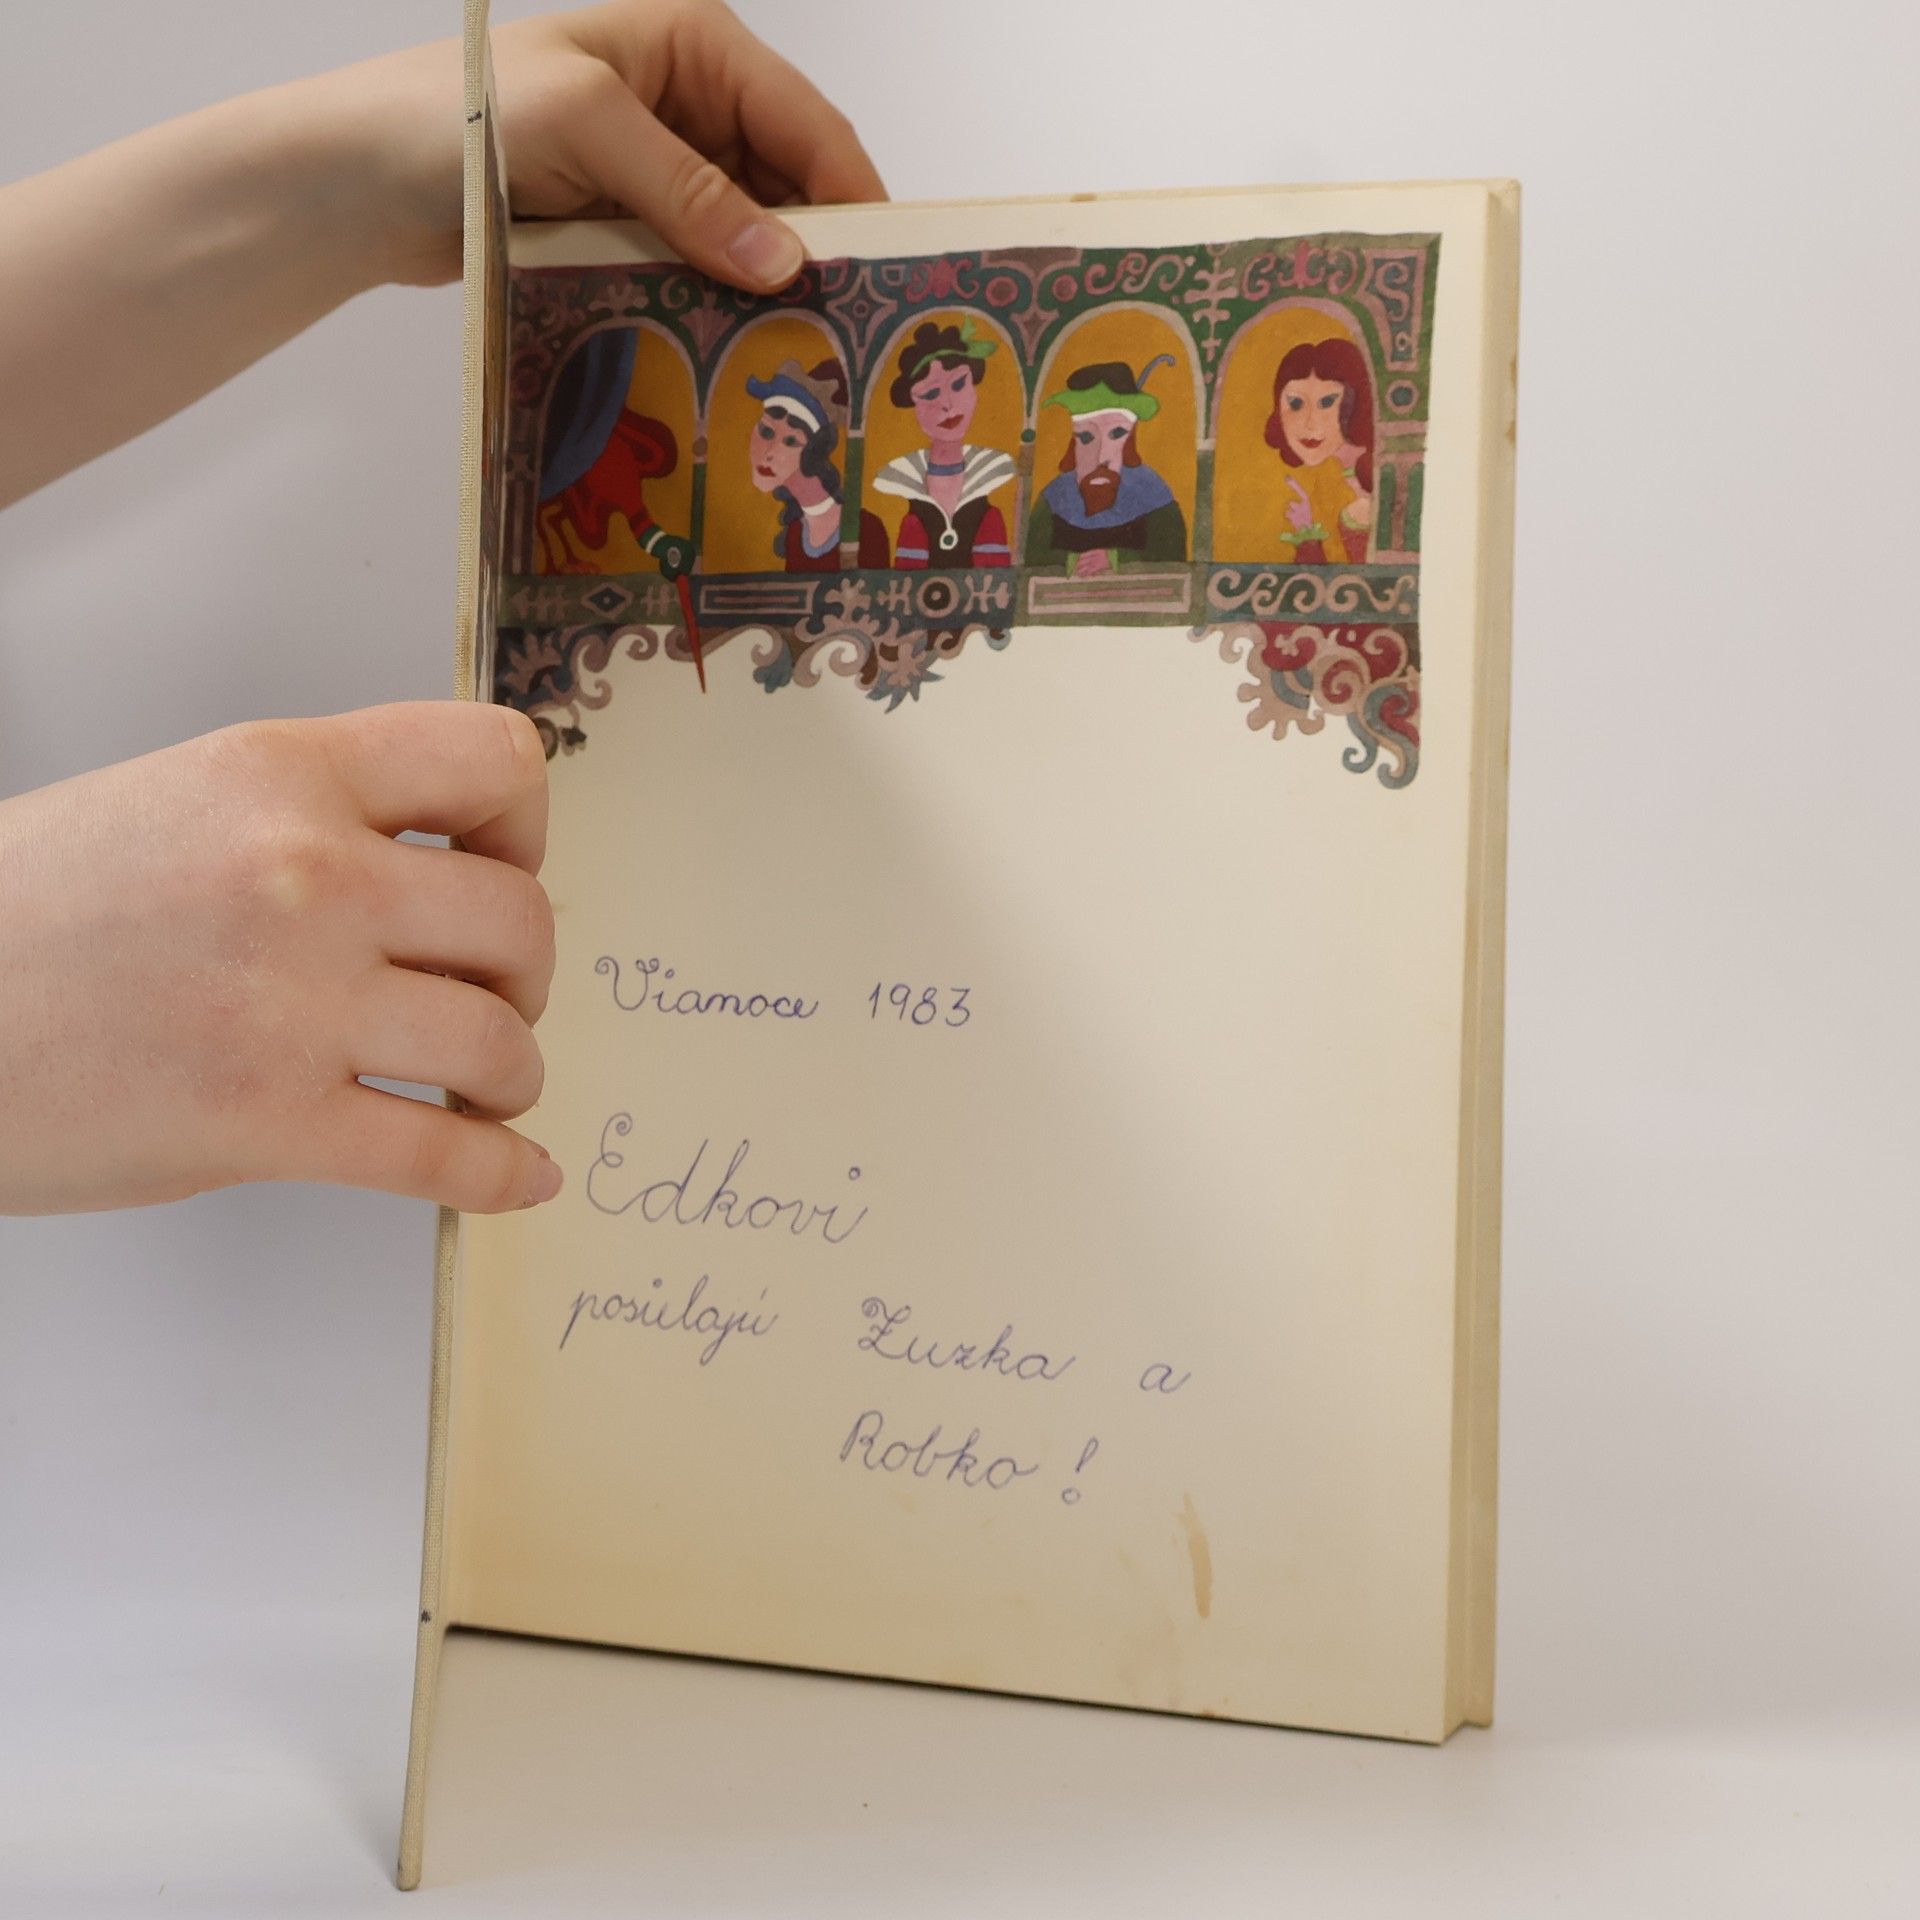 Vianoce 1983
Edkovi
posielajú Zuzka a
Robko!